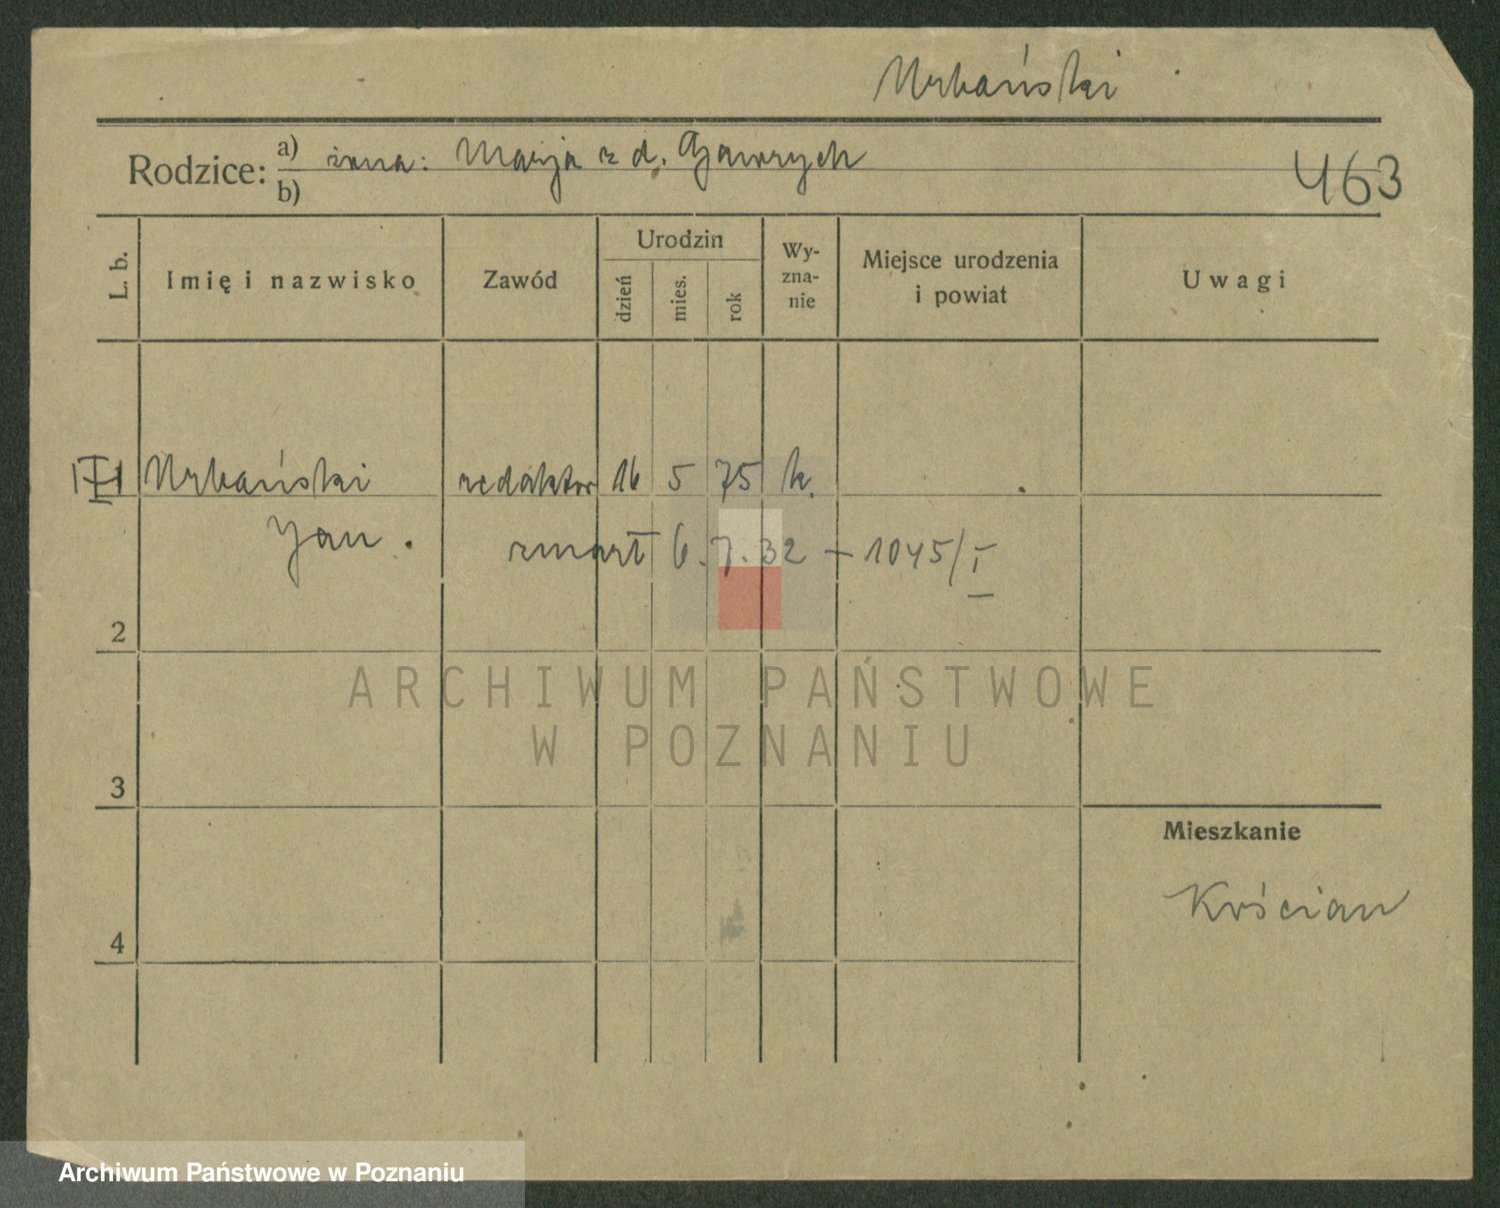 Urbański
Rodzice: a) żona: Marja z d. Gawrych
b)
463
L. b.
Imię i nazwisko
Zawód
Urodzin
dzień
mies.
rok
Wy-
zna-
nie
Miejsce urodzenia
i powiat
Uwagi
Urbański redaktor 16 5 75 k.
Jan.
zmarł 6.7.32 - 1045/I
2
3
4
Mieszkanie
Kościan
ARCHIWUM PAŃSTWOWE
W POZNANIU
Archiwum Państwowe w Poznaniu